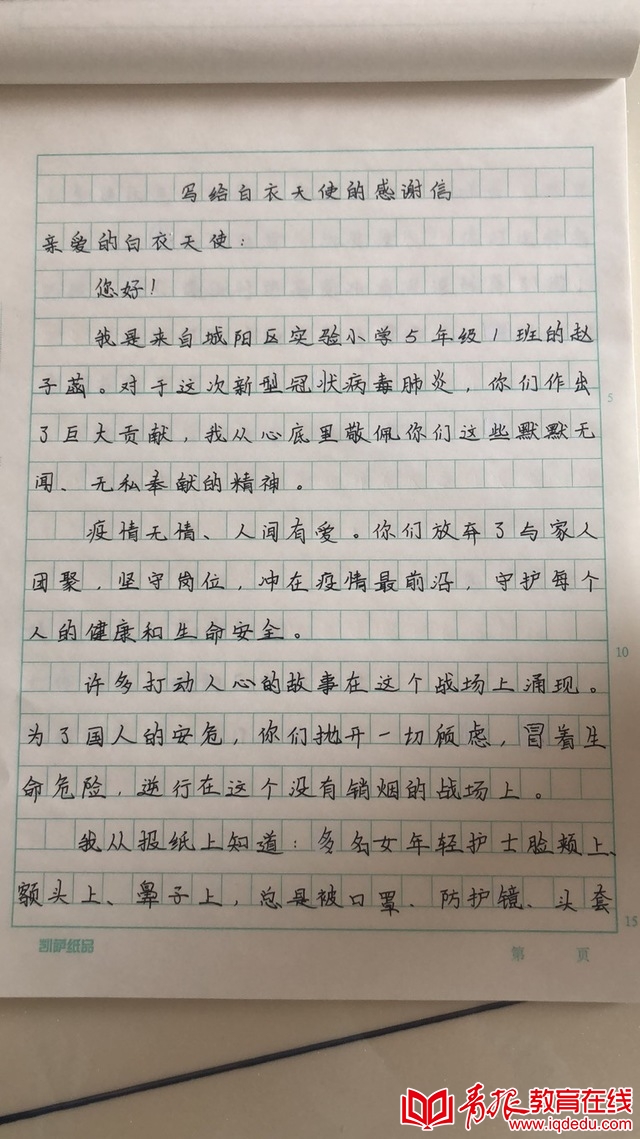 写给白衣天使的感谢信
亲爱的白衣天使：
您好！
我是来自城阳区实验小学5年级1班的赵
子菡。对于这次新型冠状病毒肺炎，你们作出
了巨大贡献，我从心底里敬佩你们这些默默无
闻、无私奉献的精神。
疫情无情、人间有爱。你们放弃了与家人
团聚，坚守岗位，冲在疫情最前沿，守护每个
人的健康和生命安全。
许多打动人心的故事在这个战场上涌现。
为了国人的安危，你们抛开一切顾虑，冒着生
命危险，逆行在这个没有销烟的战场上。
我从报纸上知道：多名女年轻护士脸颊上、
额头上、鼻子上，总是被口罩、防护镜、头套
5
10
15
凯萨纸品
第 页
青报教育在线
www.iqdedu.com